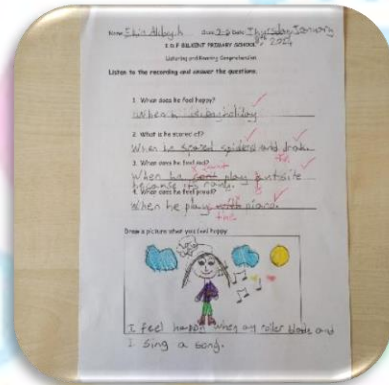 Name: Class: 2-B Date: Thursday January
2024
I D F BILKENT PRIMARY SCHOOL
Listening and Comprehension
Listen to the recording and answer the questions.
1. When does he feel happy?
When holiday
2. What is he scared of?
When he scared spiders and
3. When does he feel sad?
When he play outsite
because its rainy.
4. When does he feel proud?
When he plays with piano.
the
Draw a picture when you feel happy
I feel happy when my roller blade and
I sing a song.